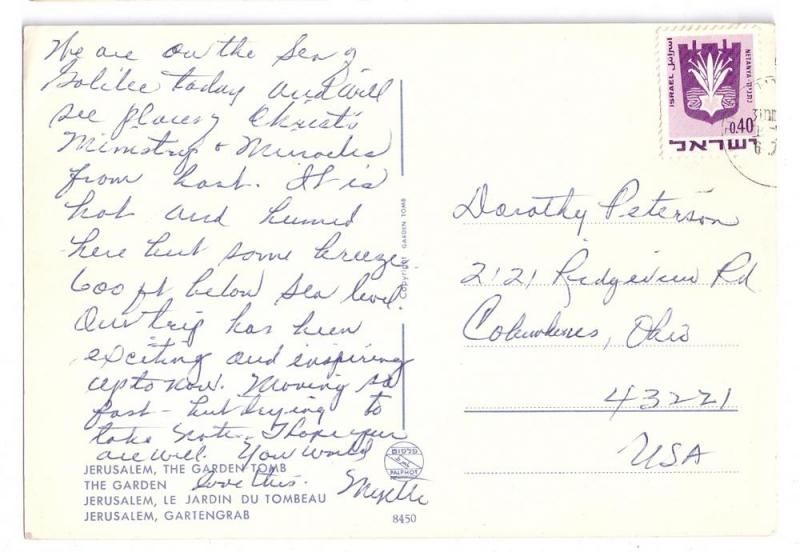 We are on the Sea of
Galilee today and will
see places of Christ's
Ministry & Miracles
from boat. It is
hot and humid
here but some breeze
600 ft below sea level.
Our trip has been
exciting and inspiring
up to now. Moving so
fast - but trying to
take notes. I hope your
are well. You would
love this. Myrtle
JERUSALEM, THE GARDEN TOMB
THE GARDEN
JERUSALEM, LE JARDIN DU TOMBEAU
JERUSALEM, GARTENGRAB
Copyright GARDEN TOMB
פלפוט
PALPHOT
8450
ISRAEL اسرائيل
NETANYA נתניה
0.40
ישראל
Dorothy Peterson
2121 Ridgeview Rd
Columbus, Ohio
43221
USA